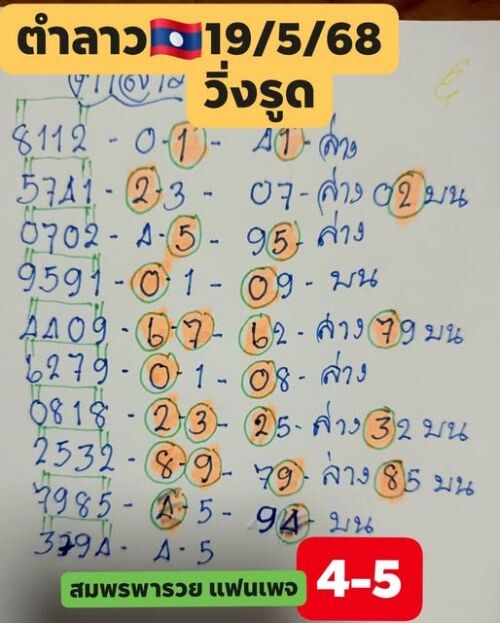 ตำลาว🇱🇦19/5/68
วิ่งรูด
8112 - 0-1 - 41 - ล่าง
5741 - 2-3 - 07 - ล่าง 02 บน
0702 - 4-5 - 95 - ล่าง
9591 - 0-1 - 09 - บน
4409 - 6-7 - 62 - ล่าง 79 บน
6279 - 0-1 - 08 - ล่าง
0818 - 2-3 - 25 - ล่าง 32 บน
2532 - 8-9 - 79 - ล่าง 85 บน
7985 - 4-5 - 94 - บน
3794 - 4-5
สมพรพารวย แฟนเพจ
4-5